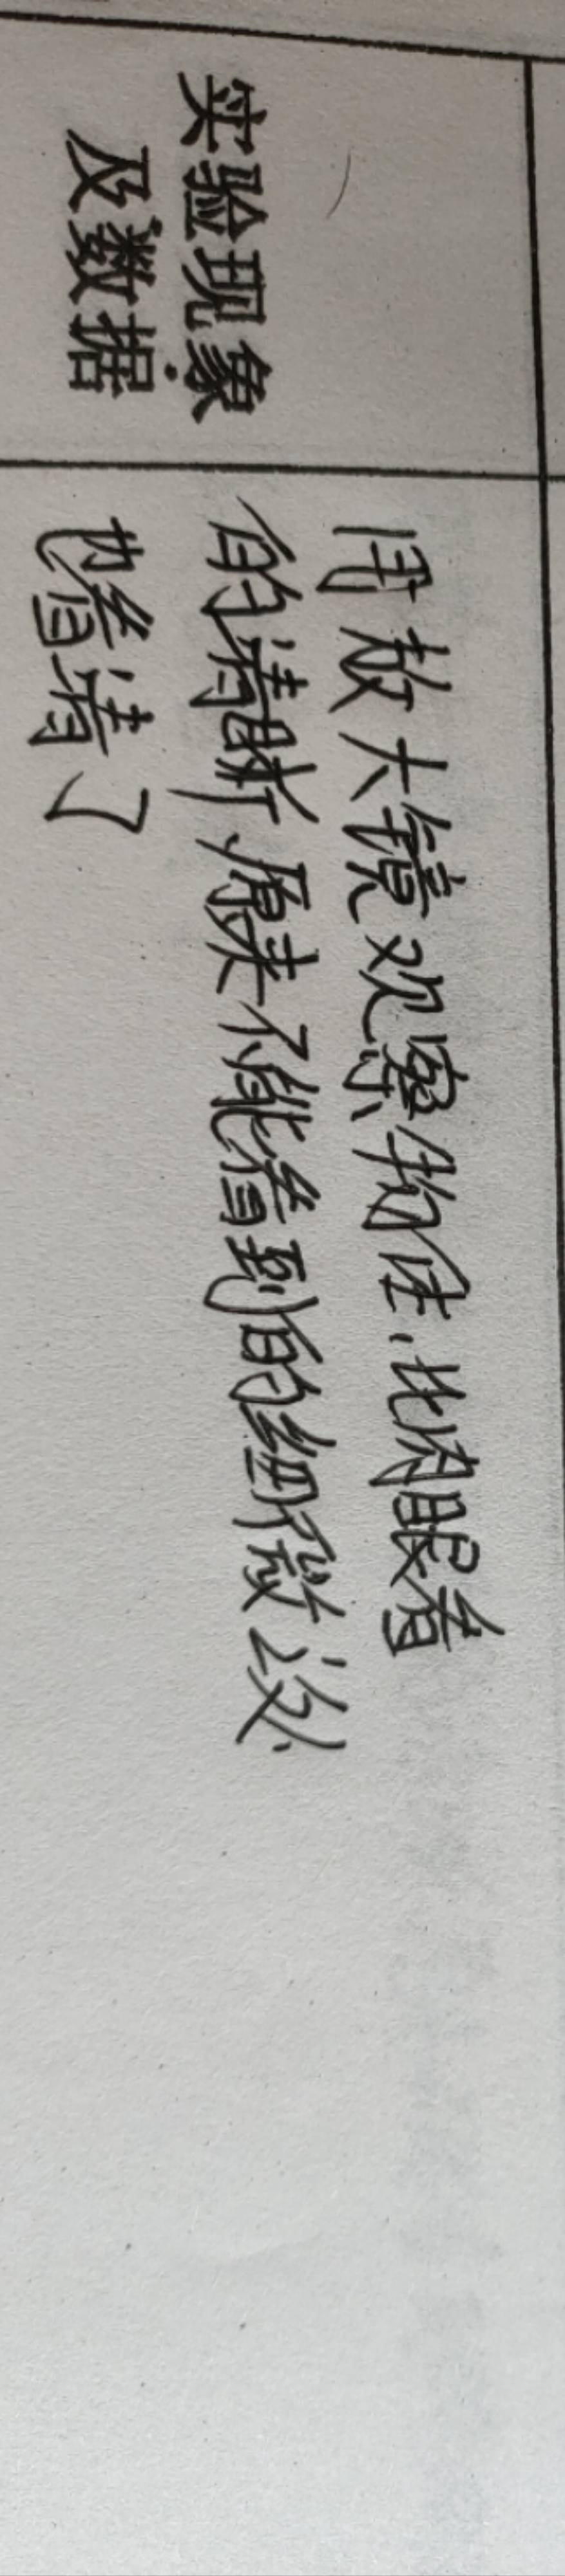 实验现象
及数据
用放大镜观察物体，比肉眼看
的清晰，原来不能看到的细微之处
也看清了